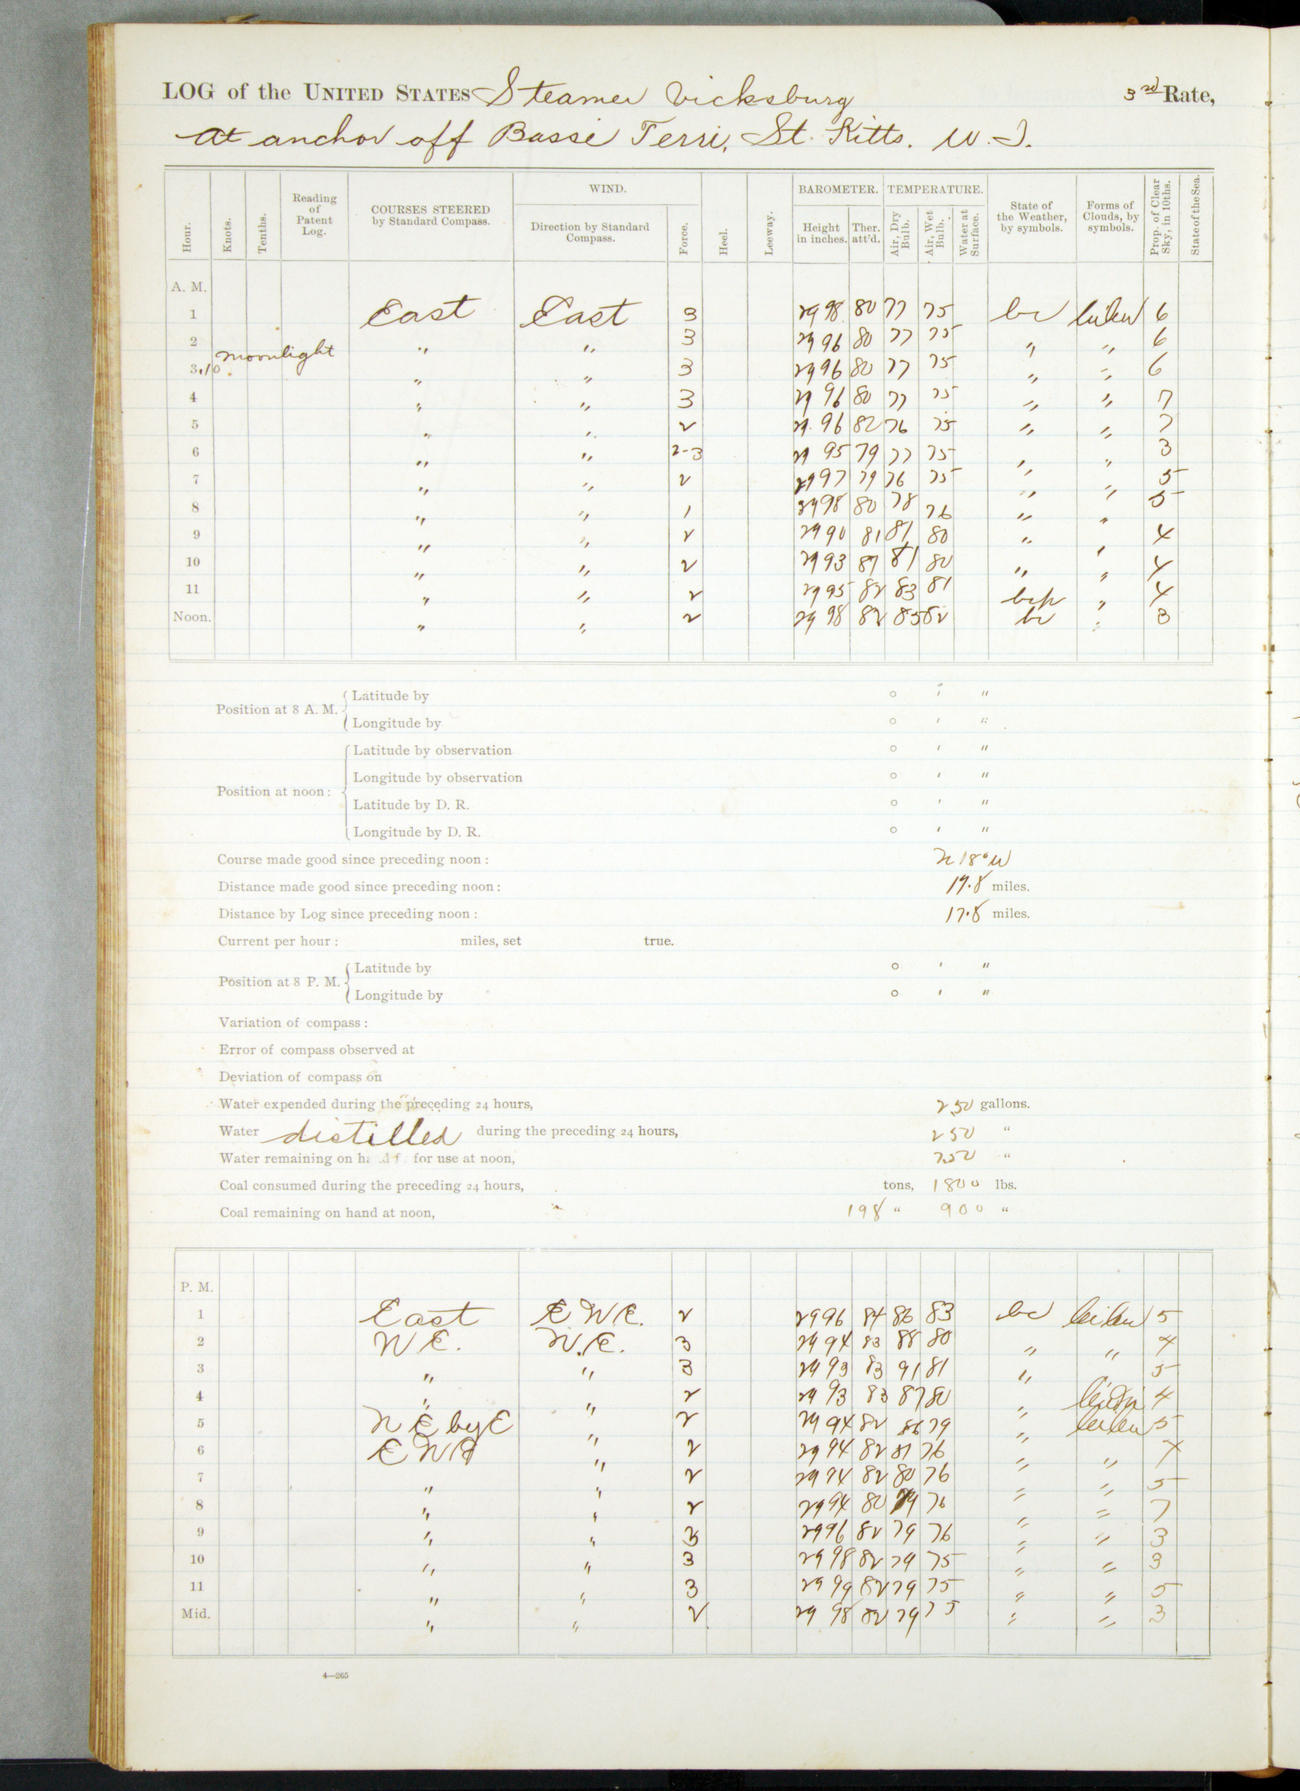 LOG of the UNITED STATES Steamer Vicksburg 3rd Rate,
At anchor off Basse Terre, St. Kitts. W. I.
Hour. Knots. Tenths. Reading of Patent Log. COURSES STEERED by Standard Compass. WIND. Direction by Standard Compass. Force. Heel. Leeway. BAROMETER. Height in inches. Ther. att'd. TEMPERATURE. Air, Dry Bulb. Air, Wet Bulb. Water at Surface. State of the Weather, by symbols. Forms of Clouds, by symbols. Prop. of Clear Sky, in 10ths. State of the Sea.
A. M.
1 East East 3 29 98 80 77 75 bc 6
2 " " 3 29 96 80 77 75 " " 6
3.10 moonlight " " 3 29 96 80 77 75 " " 6
4 " " 3 29 96 80 77 75 " " 7
5 " " 2 29 96 82 76 75 " " 7
6 " " 2-3 29 95 79 77 75 " " 3
7 " " 2 29 97 79 76 75 " " 5
8 " " 1 29 98 80 78 76 " " 5
9 " " 2 29 90 81 81 80 " " 4
10 " " 2 29 93 81 81 80 " " 4
11 " " 2 29 95 82 83 81 bcp " 4
Noon. " " 2 29 98 82 85 82 bc " 3
Position at 8 A. M. Latitude by ° ' "
Longitude by ° ' "
Position at noon: Latitude by observation ° ' "
Longitude by observation ° ' "
Latitude by D. R. ° ' "
Longitude by D. R. ° ' "
Course made good since preceding noon: N 18° W
Distance made good since preceding noon: 17.8 miles.
Distance by Log since preceding noon: 17.8 miles.
Current per hour: miles, set true.
Position at 8 P. M. Latitude by ° ' "
Longitude by ° ' "
Variation of compass:
Error of compass observed at
Deviation of compass on
Water expended during the preceding 24 hours, 250 gallons.
Water distilled during the preceding 24 hours, 250 "
Water remaining on hand for use at noon, 750 "
Coal consumed during the preceding 24 hours, tons, 1800 lbs.
Coal remaining on hand at noon, 198 " 900 "
P. M.
1 East E N E. 2 29 96 84 86 83 bc 5
2 N E. N. E. 3 29 94 83 88 80 " " 4
3 " " 3 29 93 83 91 81 " 5
4 " " 2 29 93 83 87 80 " 4
5 N E by E " 2 29 94 82 86 79 " 5
6 E N E " 2 29 94 82 81 76 " " 4
7 " " 2 29 94 82 80 76 " " 5
8 " " 2 29 94 80 79 76 " " 7
9 " " 3 29 96 82 79 76 " " 3
10 " " 3 29 98 82 79 75 " " 3
11 " " 3 29 99 82 79 75 " " 5
Mid. " " 2 29 98 82 79 75 " " 3
4—265